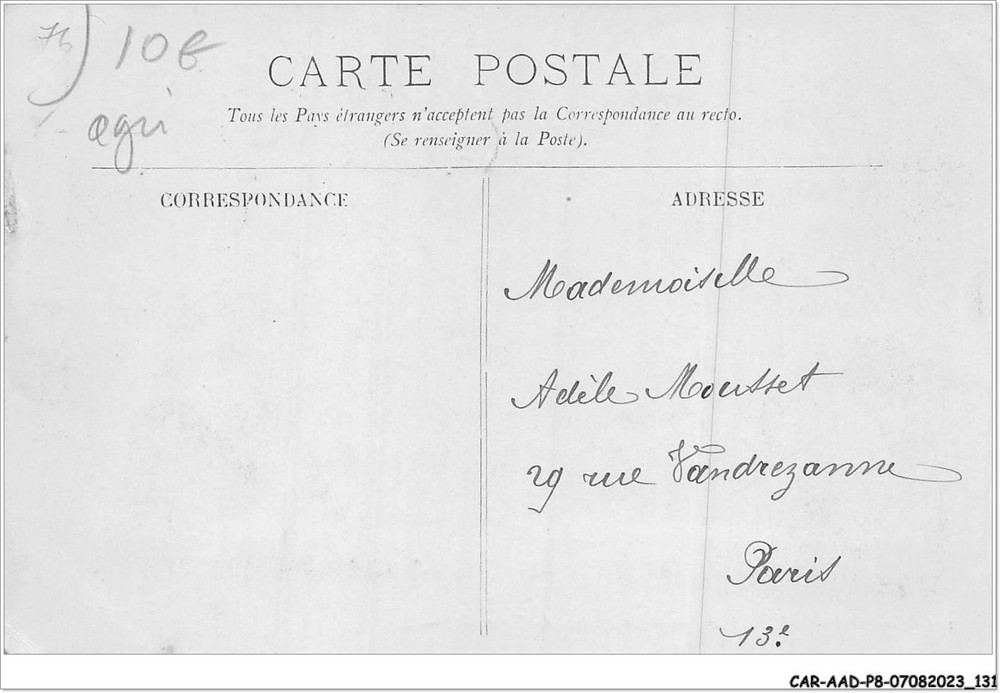 76
10€
agri
CARTE POSTALE
Tous les Pays étrangers n'acceptent pas la Correspondance au recto.
(Se renseigner à la Poste).
CORRESPONDANCE
ADRESSE
Mademoiselle
Adèle Mousset
29 rue Vandrezanne
Paris
13e
CAR-AAD-P8-07082023_131